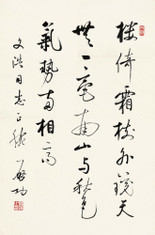 樓倚霜樹外鏡天
無一毫南山与秋色
氣勢兩相高
文浩同志正腕 啟功